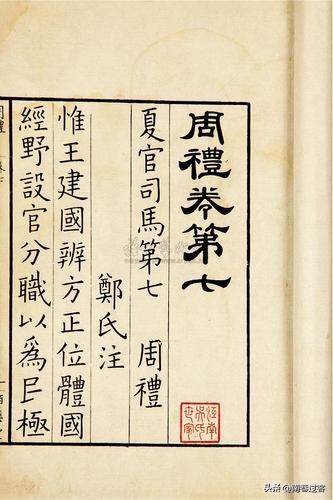 周禮卷第七
夏官司馬第七　周禮
鄭氏注
惟王建國辨方正位體國
經野設官分職以爲民極
头条